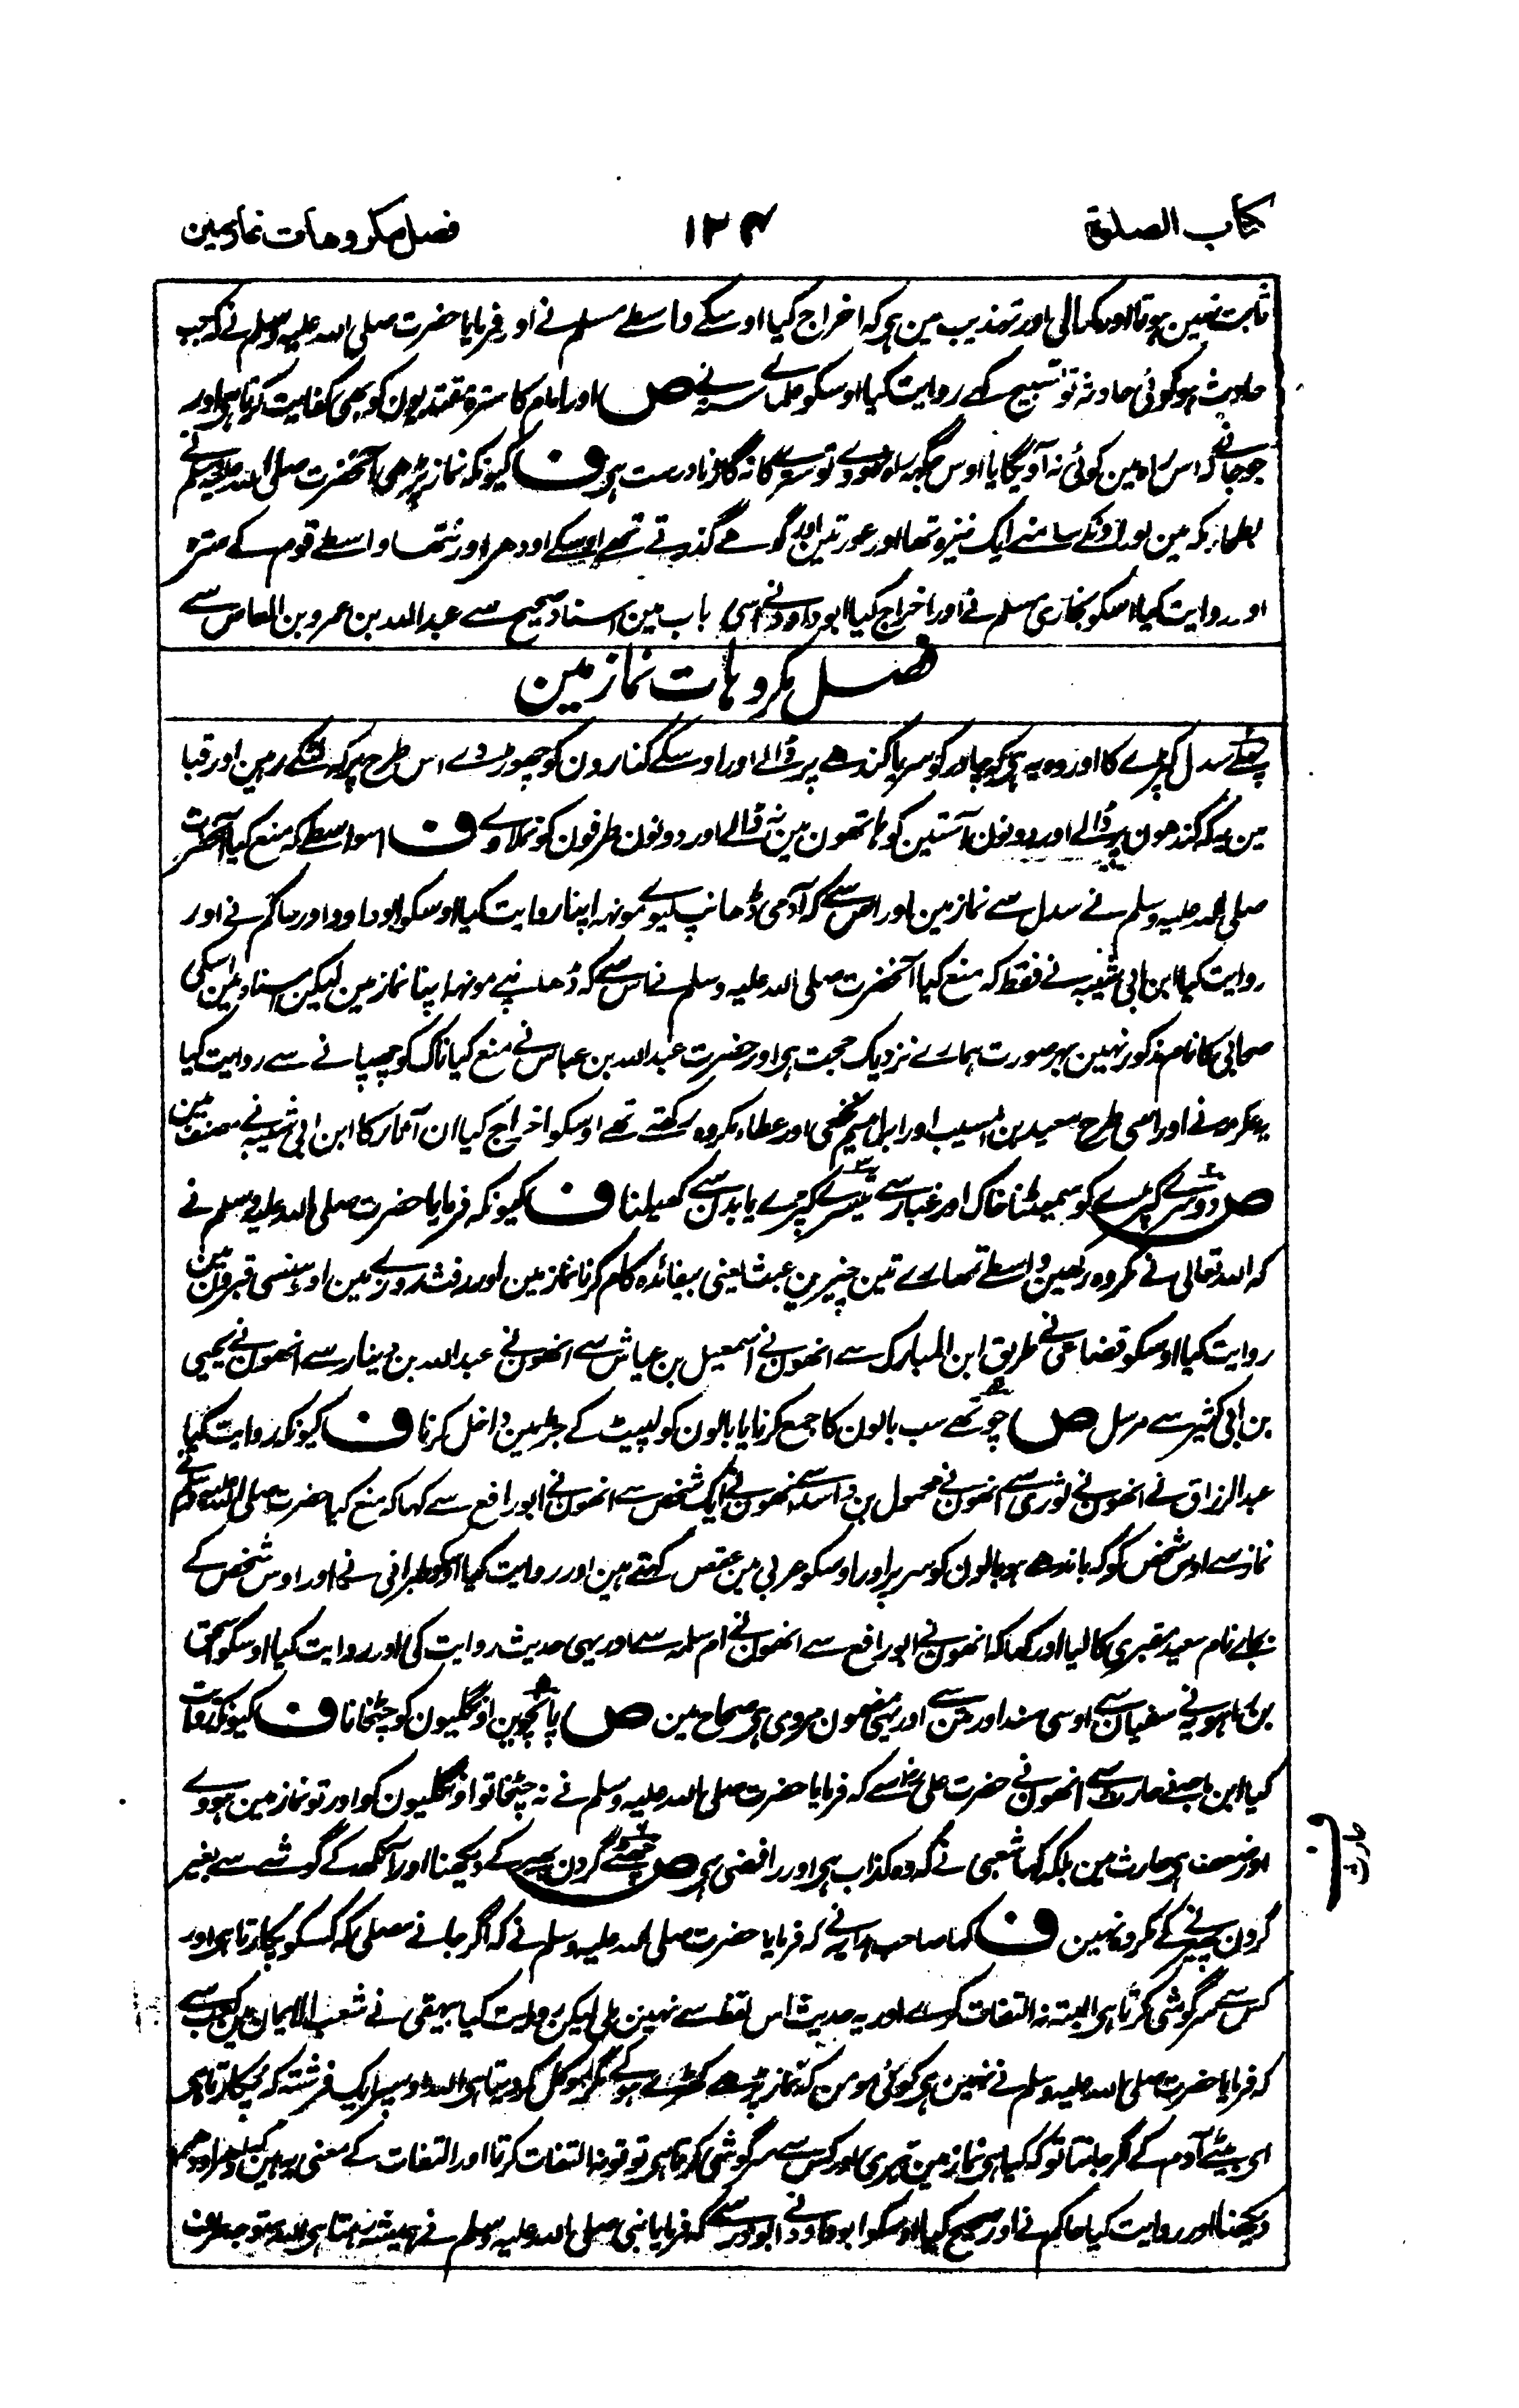 کتاب الصلوة
۱۳۴
فصل مکروهات نمازمین
ثابت نہین ہوتا اور کمالی اور تہذیب مین ہی کہ اخراج کیا اوسکے واسطے مسلم نے اور فرمایا حضرت صلی اللہ علیہ وسلم نے کہ جب
حادث ہو کوئی حادثہ تو تسبیح کہے روایت کیا اوسکو علمائے ستہ نے ص اور امام کا سترہ مقتدیون کو بھی کفایت کرتا ہی اور
جو جانے کہ اس راہ مین کوئی نہ آویگا یا اوس جگہ راہ نہووے تو سترے کا نہ گاڑنا درست ہی ف کیونکہ نماز پڑھی آنحضرت صلی اللہ علیہ وسلم نے
بطحاء مکہ مین اور اونکے سامنے ایک نیزہ تھا اور عورتین اور گدھے گذرتے تھے اوسکے اودھر اور نتھا واسطے قوم کے سترہ
اور روایت کیا اسکو بخاری مسلم نے اور اخراج کیا ابو داود نے اسی باب مین اسناد صحیح سے عبد اللہ بن عمرو بن العاص سے
فصل مکروہات نماز مین
پہلے سدل کپڑے کا اور وہ یہ ہی کہ چادر کو سر یا کندھے پر ڈالے اور اوسکے کنارون کو چھوڑ دے اس طرح پر کہ لٹکے رہین اور قبا
مین یہ کہ کندھون پر ڈالے اور دونون آستین کو ہاتھون مین نہ ڈالے اور دونون طرفون کو نملاوے ف اسواسطے کہ منع کیا آنحضرت
صلی اللہ علیہ وسلم نے سدل سے نماز مین اور اس سے کہ آدمی ڈھانپ لیوے مونہہ اپنا روایت کیا اوسکو ابوداود اور حاکم نے اور
روایت کیا ابن ابی شیبہ نے فقط کہ منع کیا آنحضرت صلی اللہ علیہ وسلم نے اس سے کہ ڈھانپے مونہہ اپنا نماز مین لیکن اسناد مین اسکی
صحابی کا نام مذکور نہین بہر صورت ہمارے نزدیک حجت ہی اور حضرت عبد اللہ بن عباس نے منع کیا ناک کو چھپانے سے روایت کیا
یہ عکرمہ نے اور اسی طرح سعید بن المسیب اور ابراہیم نخعی اور عطاء مکروہ رکھتے تھے اوسکو اخراج کیا ان آثار کا ابن ابی شیبہ نے مصنف مین
ص دوسرے کپڑے کو سمیٹنا خاک اور غبار سے تیسرے کپڑے یا بدن سے کھیلنا ف کیونکہ فرمایا حضرت صلی اللہ علیہ وسلم نے
کہ اللہ تعالی نے مکروہ رکھین واسطے تمھارے تین چیزین عبث یعنی بیفائدہ کام کرنا نماز مین اور رفث روزے مین اور ہنسی قبرون مین
روایت کیا اوسکو قضاعی نے طریق ابن المبارک سے انھون نے اسمعیل بن عیاش سے انھون نے عبد اللہ بن دینار سے انھون نے یحیی
بن ابی کثیر سے مرسل ص چوتھے سب بالون کا جمع کرنا یا بالون کو لپیٹ کے جڑ مین داخل کرنا ف کیونکہ روایت کیا
عبد الرزاق نے انھون نے ثوری سے انھون نے مخول بن راشد سے انھون نے ایک شخص سے انھون نے ابو رافع سے کہا کہ منع کیا حضرت صلی اللہ علیہ وسلم نے
نماز سے اوس شخص کو کہ باندھے ہو بالون کو سر پر اور اوسکو عربی مین عقص کہتے ہین اور روایت کیا اوسکو طبرانی نے اور اوس شخص کے
بجاے نام سعید مقبری کا لیا اور کہا کہ انھون نے ابو رافع سے انھون نے ام سلمہ سے اور یہی حدیث روایت کی اور روایت کیا اوسکو اسحق
بن راہویہ نے سفیان سے اوسی سند اور متن سے اور یہی مضمون مروی ہی صحاح مین ص پانچوین اونگلیون کو چٹخانا ف کیونکہ روایت
کیا ابن ماجہ نے حارث سے انھون نے حضرت علی رض سے کہ فرمایا حضرت صلی اللہ علیہ وسلم نے نہ چٹخا تو اونگلیون کو اور تو نماز مین ہووے
اور ضعف ہی حارث مین بلکہ کہا شعبی نے کہ وہ کذاب ہی اور رافضی ہی ص چھٹے گردن پھیر کے دیکھنا اور آنکھ کے گوشے سے بغیر
گردن پھیرنے کے مکروہ نہین ف کہا صاحب ہدایہ نے کہ فرمایا حضرت صلی اللہ علیہ وسلم نے کہ اگر جانے مصلی کہ کسکو پکارتا ہی اور
کس سے سرگوشی کرتا ہی البتہ نہ التفات کرے اور یہ حدیث اس لفظ سے نہین ملی لیکن روایت کیا بیہقی نے شعب الایمان مین کعب سے
کہ فرمایا حضرت صلی اللہ علیہ وسلم نے نہین ہی کوئی مومن کہ نماز پڑھے کھڑے ہو کے مگر موکل کردیتا ہی اللہ اوسپر ایک فرشتہ کہ پکارتا ہی
ای بیٹے آدم کے اگر جانتا تو کہ کیا ہی نماز مین تیری اور کس سے سرگوشی کرتا ہی تو تو نہ التفات کرتا اور التفات کے معنی یہ ہین کہ ادھر اودھر
دیکھنا اور روایت کیا حاکم نے اور صحیح کیا اوسکو ابو داود نے ابوذر سے کہ فرمایا نبی صلی اللہ علیہ وسلم نے ہمیشہ رہتا ہی اللہ متوجہ طرف